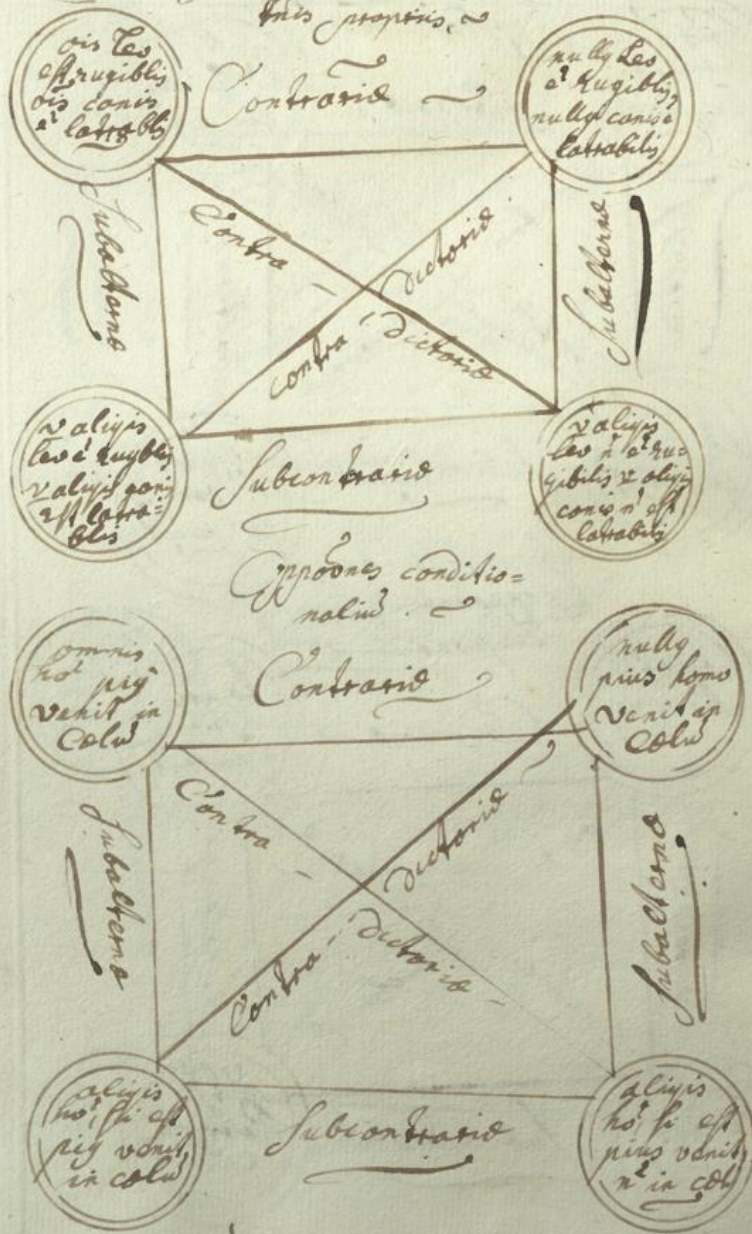 tnis propriis.
ois Leo
est rugiblis
ois canis
e latrablis
Contrariæ
nullq Leo
e Rugiblis,
nullq canis e
latrabilis
Subalternæ
Contra - dictoriæ
contra - dictoriæ
Subalternæ
v aliqis
leo e Rugiblis
v aliqis canis
est latra=
blis
Subcontrariæ
v aliqis
leo n e Ru=
gibilis v aliqis
canis n est
latrabilis
Oppoones conditio=
naliu.
omnis
ho piq
venit in
Cælu
Contrariæ
nullq
pius homo
venit in
Cælu
Subalternæ
Contra - dictoriæ
Contra - dictoriæ -
Subalternæ
aliqis
ho, si est
piq venit
in cælu
Subcontrariæ
aliqis
ho, si est
pius venit
n in cæl